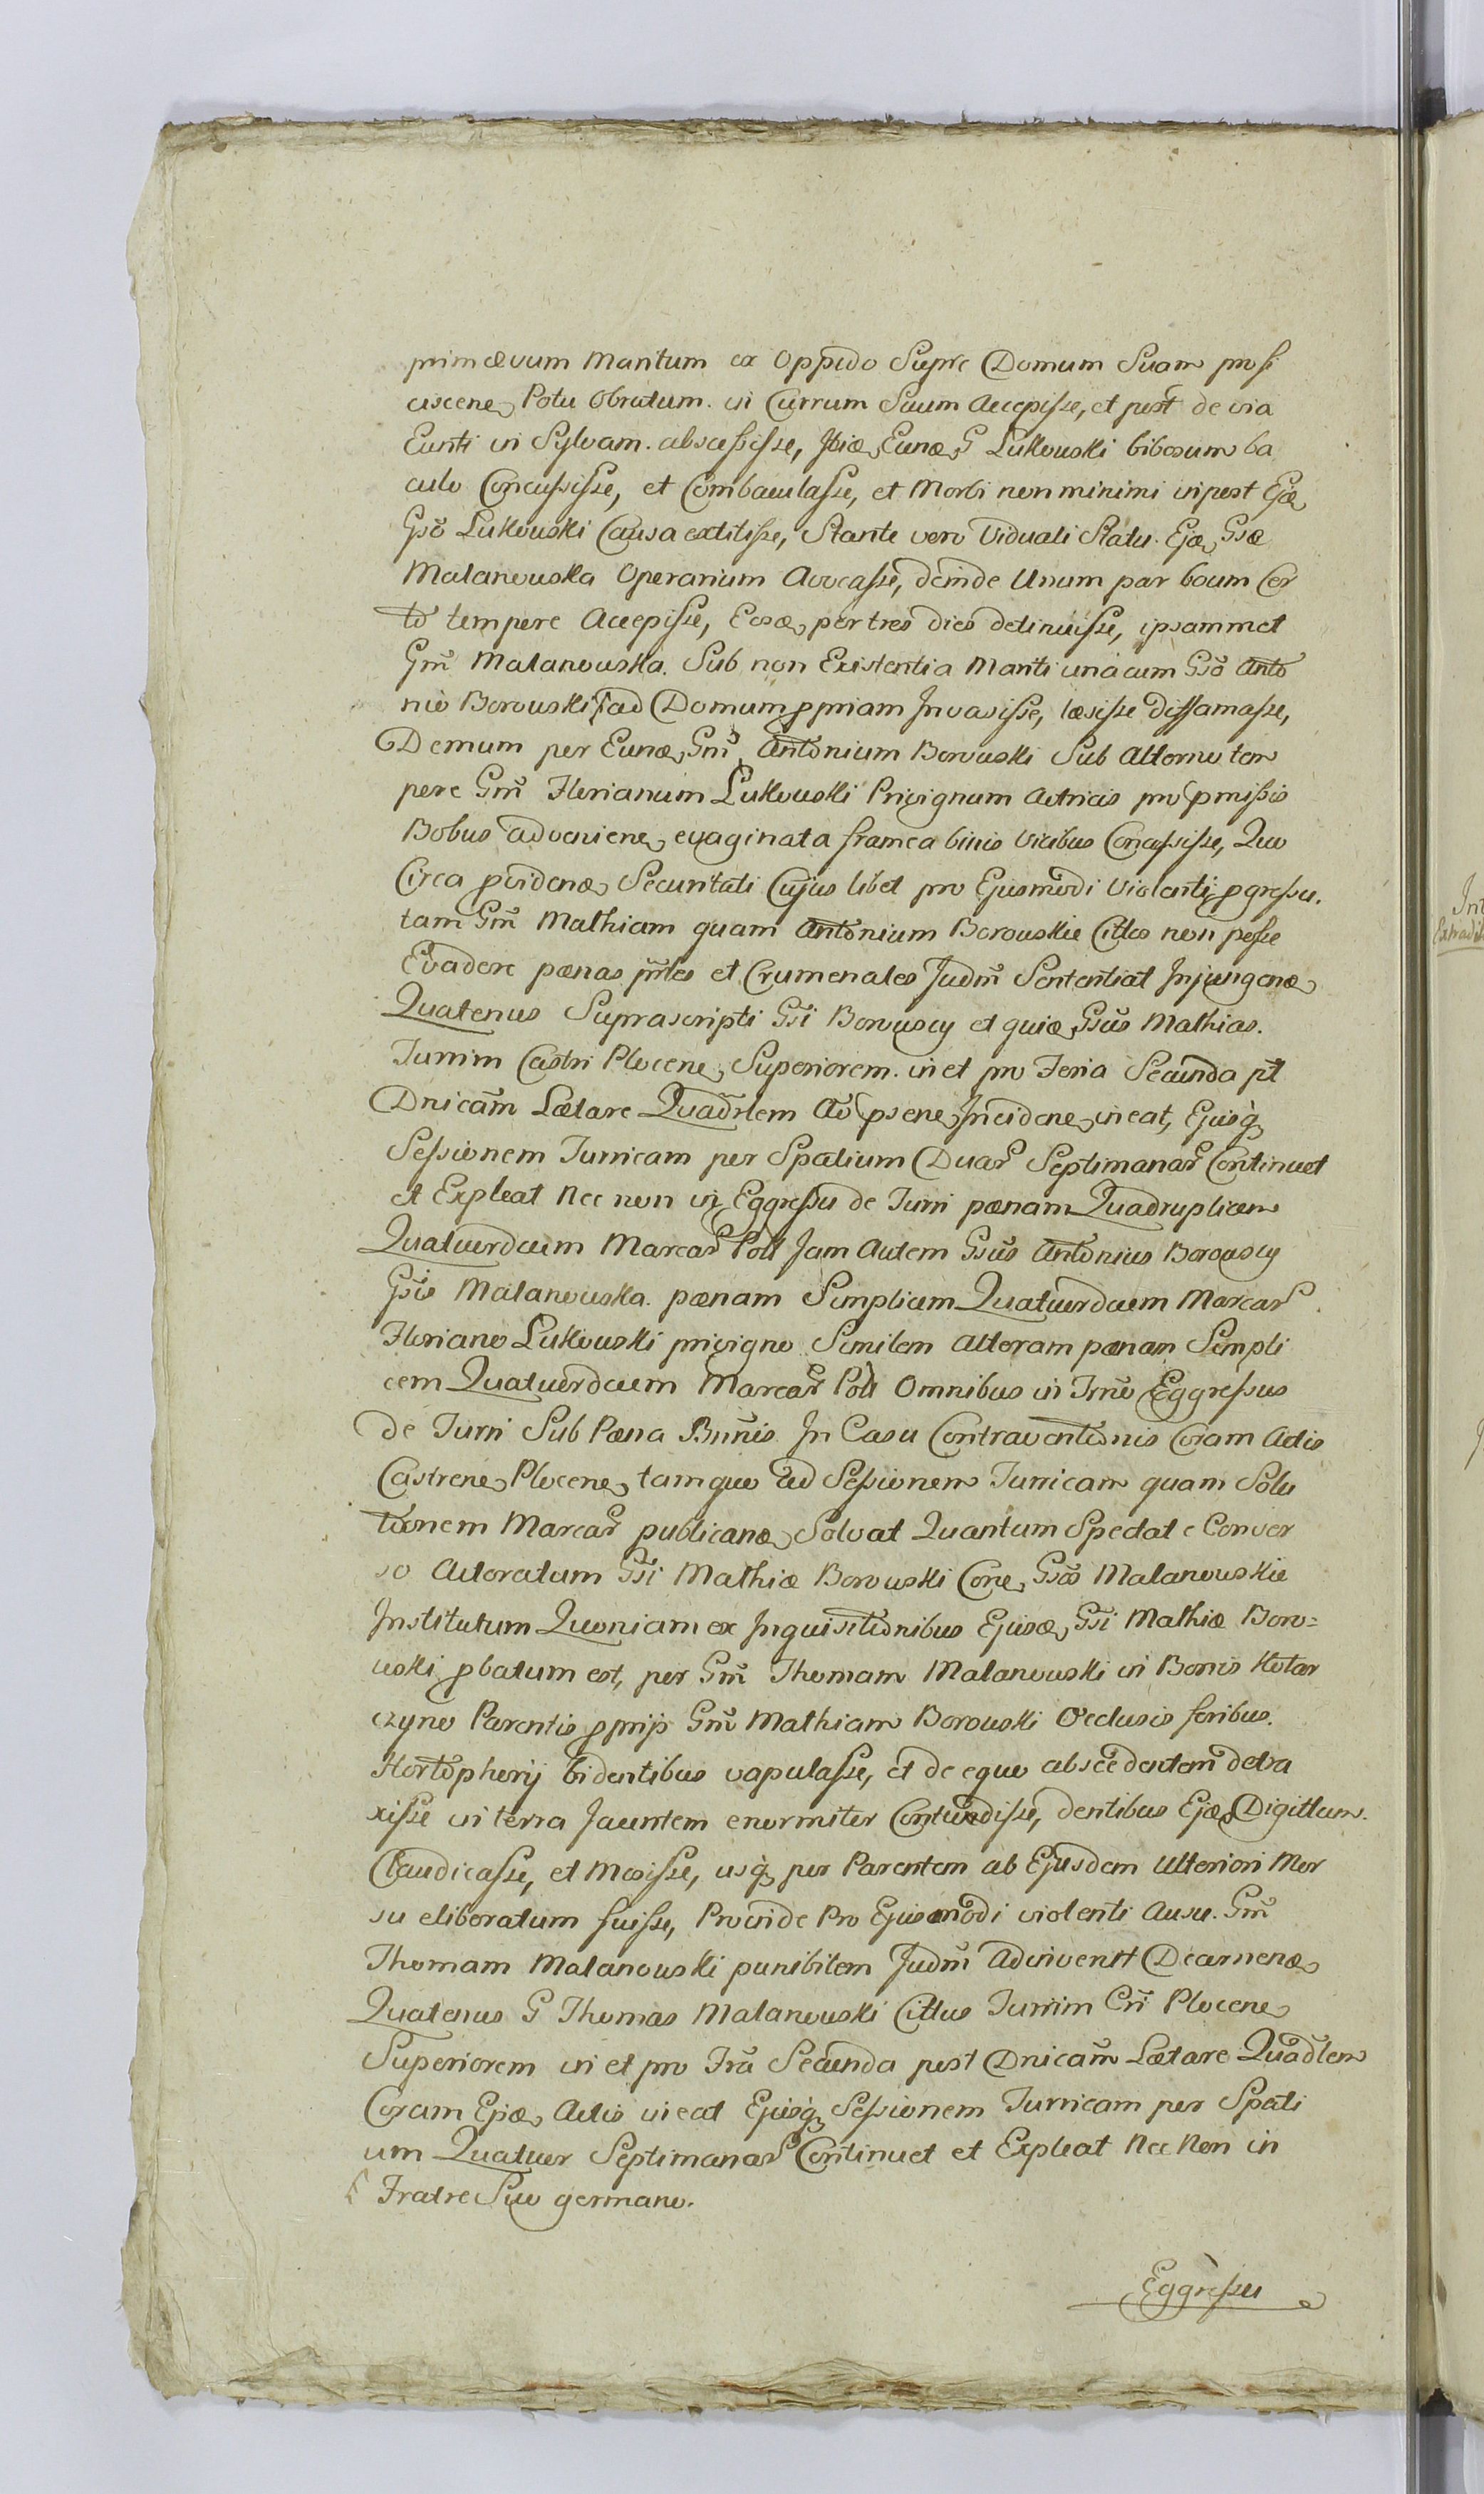 primævum Maritum ex Oppido Sierpc Domum Suam profi
ciscen. Potu Obrutum in Currum Suum Accepisse, et post de via
Eunti in Sylvam abscessisse, Ibiq. Eund. G Lukowski bibosum ba
culo Concussisse, et Combaculasse, et Morbi non minimi in post Ejd.
Gsō Lukowski Causa extitisse, Stante vero Viduali Statu Ejd. Gsæ
Malanowska Operarium Avocasse, deinde Unum par boum Cer
to tempore Accepisse, Eosq. per tres dies detinuisse, ipsammet
Gm̃ Malanowska Sub non Existentia Mariti una cum Gsō Anto
nio Borowski ad Domum ppriam Invasisse, læsisse diffamasse,
Demum per Eund. Gm̃ Antonium Borowski Sub Alterno tem
pore Gm̃ Florianum Lukowski Privignum Actricis pro pmissis
Bobus advenien. evaginata framea binis Vicibus Concussisse, Quo
Circa pviden. Securitati Cujus libet pro Ejusmodi Violenti pgressu
tam Gm̃ Mathiam quam Antonium Borowskie Cittos non posse
Evadere pænas prtes et Crumenales Judm̃ Sententiat Injungen.
Quatenus Suprascripti Gsi Borowscy et quid. Gsus Mathias
Turrim Castri Plocen. Superiorem in et pro Feria Secunda pt
Dnicam̃ Lætare Quadrlem Ao psen. Inciden. ineat, Ejusq.
Sessionem Turricam per Spatium Duar Septimanar Continuet
et Expleat Nec non in Eggressu de Turri pænam Quadruplicem
Quatuordecim Marcar Poll Jam Autem Gsus Antonius Borowscy
Gsis Malanowska pænam Simplicem Quatuordecim Marcar
Floriano Lukowski privigno Similem Alteram pænam Simpli
cem Quatuordecim Marcar Poll Omnibus in Trno Eggressus
de Turri Sub Pæna Bnnis In Casu Contraventionis Coram Actis
Castren. Plocen. tam quo ad Sessionem Turricam quam Solu
tionem Marcar publicand. Solvat Quantum Spectat e Conver
so Actoratum Gsi Mathiæ Borowski Cone. Gsos Malanowskie
Institutum Quoniam ex Inquisitionibus Ejusd. Gsi Mathiæ Boro=
wski pbatum est, per Gm̃ Thomam Malanowski in Bonis Kotar
czyno Parentis pprijs Gm̃ Mathiam Borowski Occlusis foribus
Hortopherij bidentibus vapulasse, et de equo abscedentem detra
xisse in terra Jacentem enormiter Contundisse, dentibus Ejd. Digitum
Claudicasse, et Mosisse, usq. per Parentem ab Ejusdem Ulteriori Mor
su eliberatum fuisse, Proinde Pro Ejusmodi violenti Ausu Gm̃
Thomam Malanowski punibilem Judm̃ Adinvenit Decernen.
Quatenus G Thomas Malanowski Cittus Turrim Cri Plocen.
Superiorem in et pro Fra Secunda post Dnicam̃ Lætare Quadlem
Coram Ejd. Actis ineat Ejusq. Sessionem Turricam per Spati
um Quatuor Septimanar Continuet et Expleat Nec Non in
Fratre Suo germano.
Eggressu